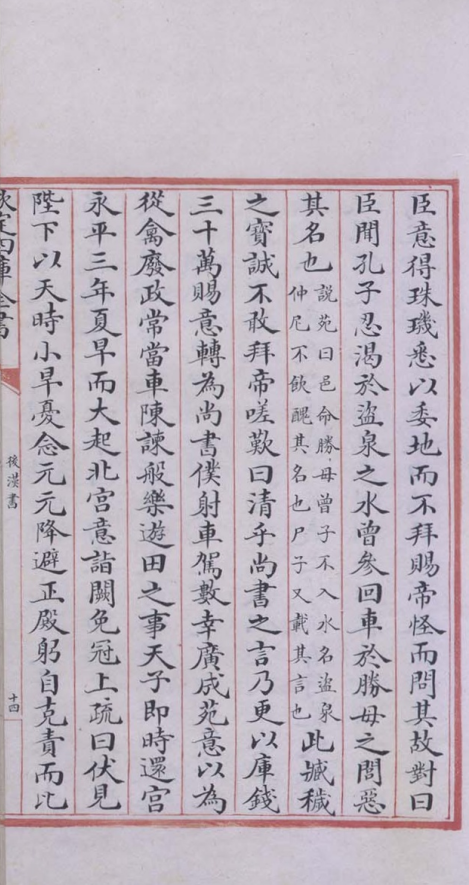 臣意得珠璣悉以委地而不拜賜帝怪而問其故對曰
臣聞孔子忍渴於盜泉之水曾參回車於勝母之閭惡
其名也說苑曰邑命勝母曾子不入水名盜泉仲尼不飲醜其名也尸子又載其言也此臧穢
之寶誠不敢拜帝嗟歎曰清乎尚書之言乃更以庫錢
三十萬賜意轉為尚書僕射車駕數幸廣成苑意以為
從禽廢政常當車陳諫般樂遊田之事天子即時還宮
永平三年夏旱而大起北宮意詣闕免冠上疏曰伏見
陛下以天時小旱憂念元元降避正殿躬自克責而比
欽定四庫全書
後漢書
十四